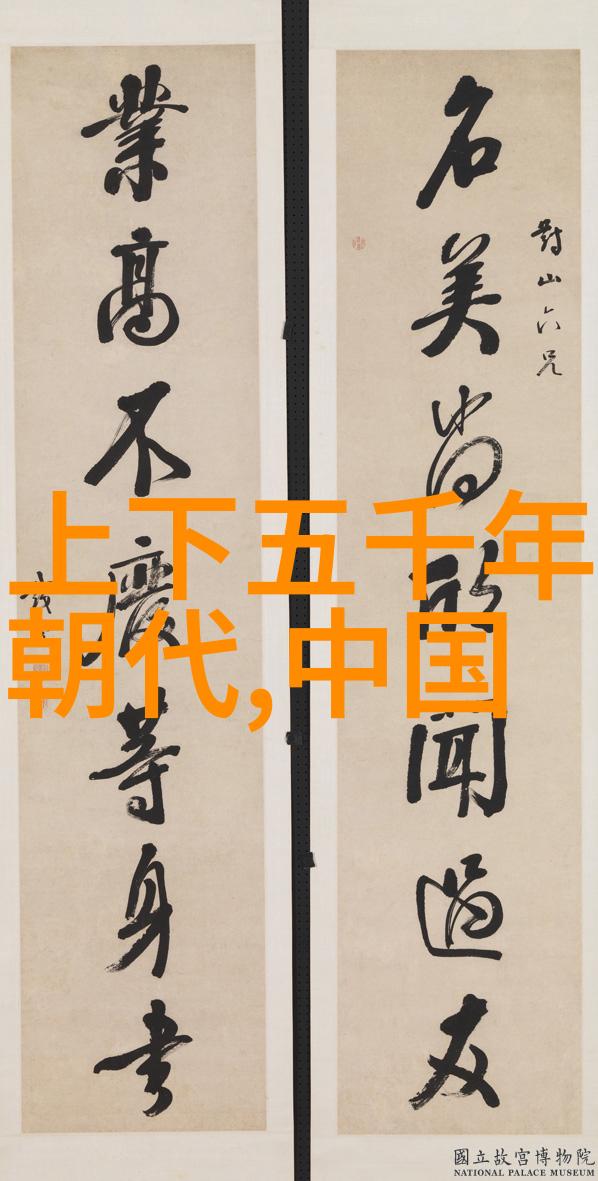 對山六兄
名美尚欣聞過友
業高不廢等身書
上下五千年
朝代,中国
國立故宮博物院
NATIONAL PALACE MUSEUM